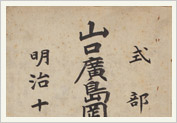 式部
山口廣島岡
明治十